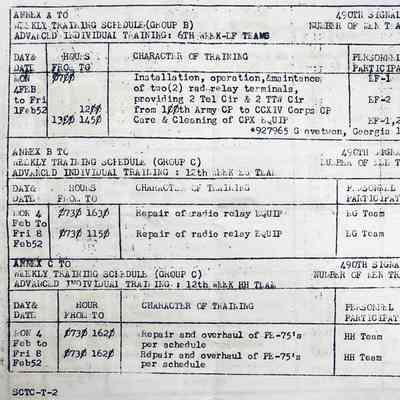 ANNEX A TO 490TH SIGNAL
WEEKLY TRAINING SCHEDULE(GROUP B) NUMBER OF MEN TRA
ADVANCED INDIVIDUAL TRAINING: 6TH WEEK-LF TEAMS
DAY& HOURS CHARACTER OF TRAINING PERSONNEL
DATE FROM TO PARTICIPA
MON 0700 Installation, operation,&maintenanc EF-1
4FEB of two(2) rad relay terminals,
to Fri providing 2 Tel Cir & 2 TTW Cir EF-2
1Feb52 1200 from 100th Army CP to CCXIV Corps CP
1300 1450 Care & Cleaning of CPX EQUIP EF-1,2
*927965 Georgia 1
ANNEX B TO 490TH SIGNA
WEEKLY TRAINING SCHEDULE (GROUP C) NUMBER OF MEN T
ADVANCED INDIVIDUAL TRAINING : 12th WEEK EG TEAM
DAY& HOURS CHARACTER OF TRAINING PERSONNEL
DATE FROM TO PARTICIPAT
MON 4 0730 1630 Repair of radio relay EQUIP EG Team
Feb To
Fri 8 0730 1150 Repair of radio relay EQUIP EG Team
Feb52
ANNEX C TO 490TH SIGNA
WEEKLY TRAINING SCHEDULE (GROUP C) NUMBER OF MEN TRA
ADVANCED INDIVIDUAL TRAINING : 12th WEEK HH TEAM
DAY& HOUR CHARACTER OF TRAINING PERSONNEL
DATE FROM TO PARTICIPAT
MON 4 0730 1620 Repair and overhaul of PE-75's HH Team
Feb to per schedule
Fri 8 0730 1620 Repair and overhaul of PE-75's HH Team
Feb52 per schedule
SCTC-T-2